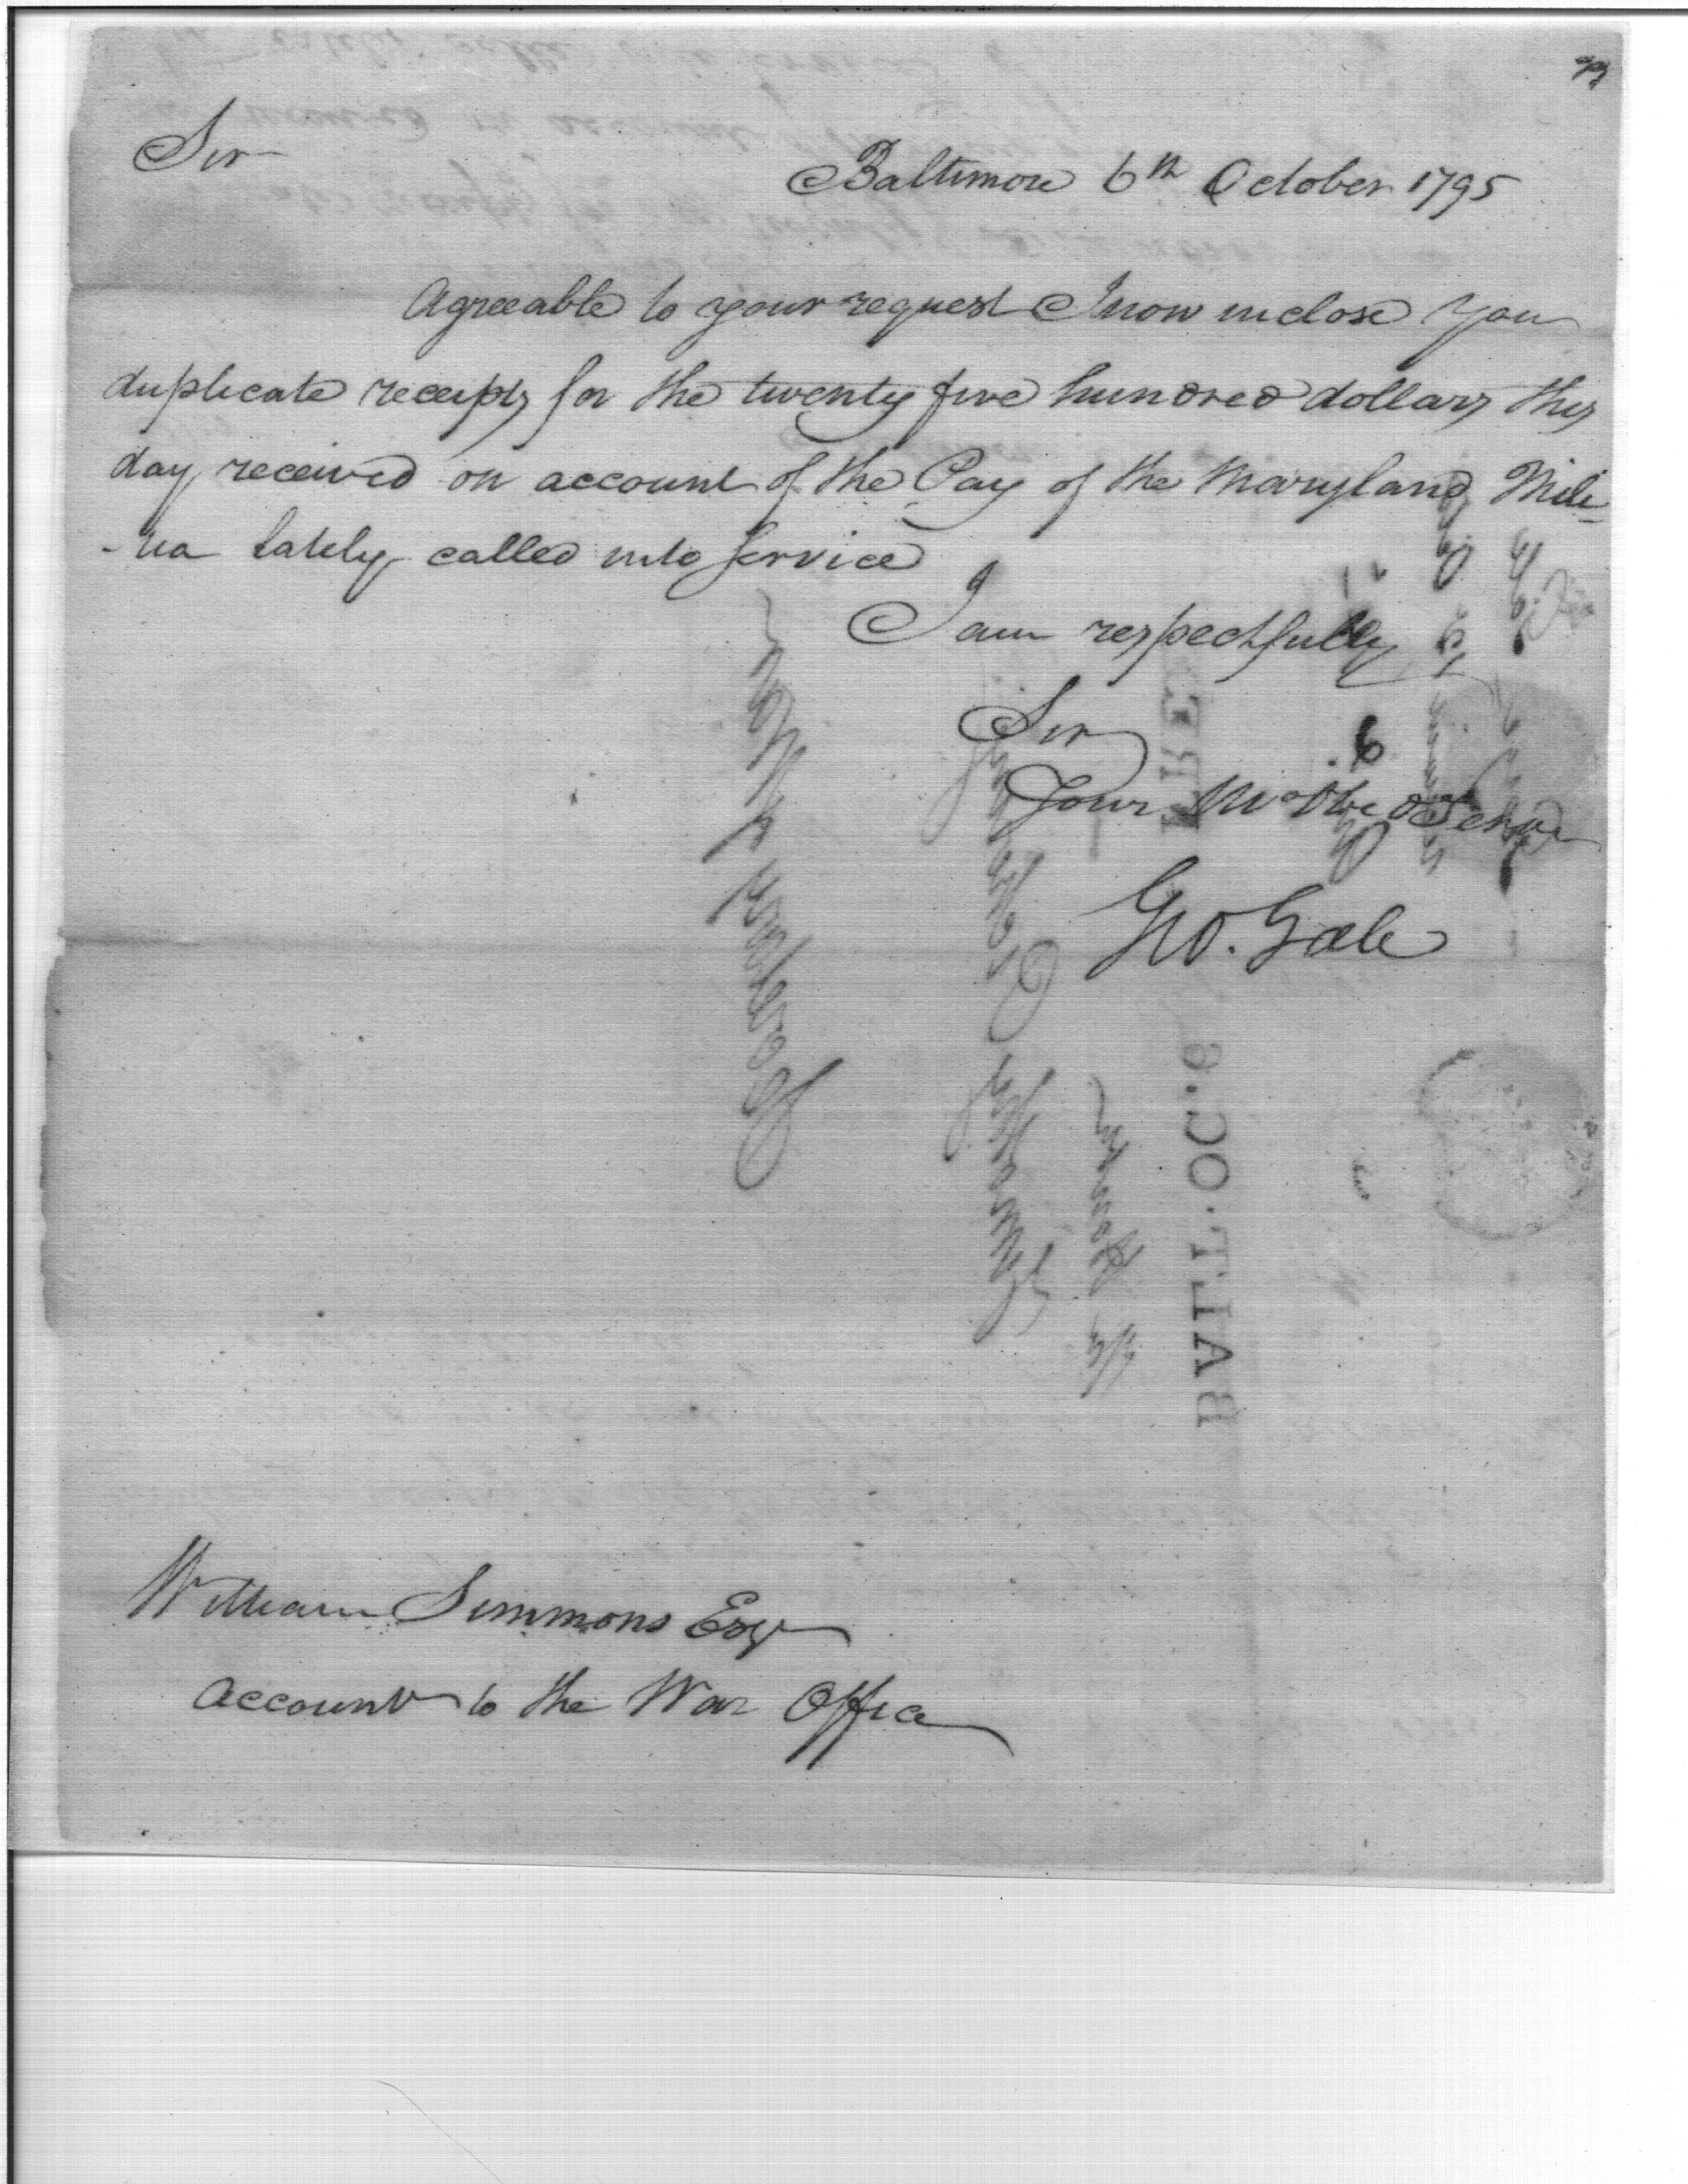 Sir
Baltimore 6th October 1795
Agreeable to your request I now inclose you
duplicate receipts for the twenty five hundred dollars this
day received on account of the Pay of the Maryland Mili
-tia lately called into Service
I am respectfully
Sir
Your Mo Obe Serv
Geo. Gale
FREE
BALT. OC. 6
William Simmons Esqr
Accountt to the War Office